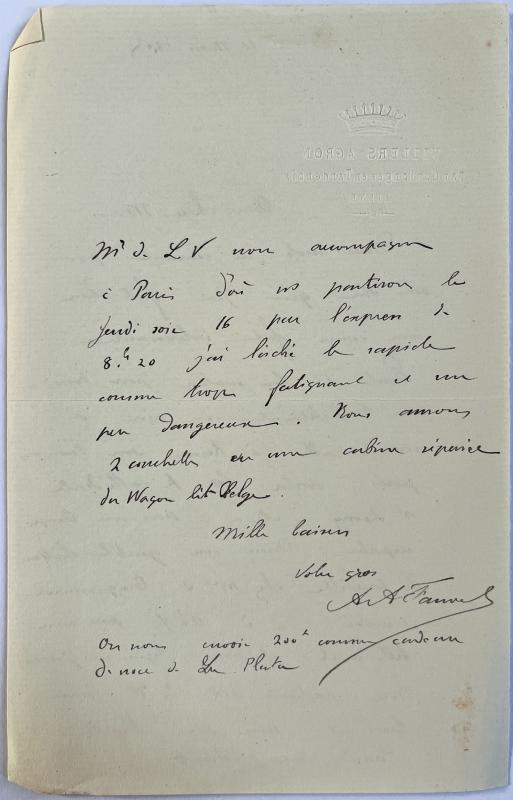 Mr de L V nous accompagne
à Paris d'où ns partirons le
Jeudi soir 16 par l'express de
8.h 20 j'ai lâché le rapide
comme trop fatigant et un
peu dangereux. Nous aurons
2 couchettes en une cabine séparée
du Wagon lit Belge.
Mille baisers
votre gros
A A Fauvel
On nous envoie 200 comme cadeau
de noce de